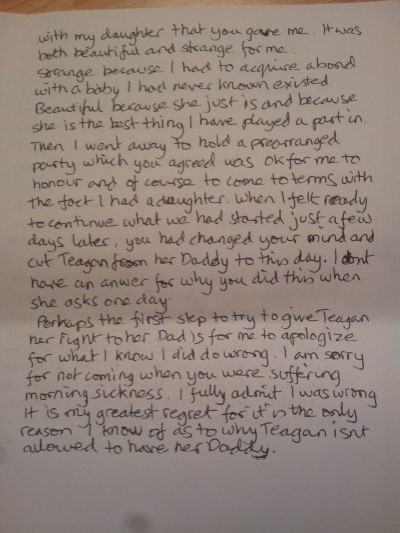 with my daughter that you gave me. It was
both beautiful and strange for me.
Strange because I had to acquire a bond
with a baby I had never known existed
Beautiful because she just is and because
she is the best thing I have played a part in.
Then I went away to hold a prearranged
party which you agreed was ok for me to
honour and of course to come to terms with
the fact I had a daughter. When I felt ready
to continue what we had started just a few
days later, you had changed your mind and
cut Teagan from her Daddy to this day. I dont
have an anwer for why you did this when
she asks one day.
Perhaps the first step to try to give Teagan
her right to her Dad is for me to apologize
for what I know I did do wrong. I am sorry
for not coming when you were suffering
morning sickness. I fully admit I was wrong
It is my greatest regret for it is the only
reason I know of as to why Teagan isnt
allowed to have her Daddy.